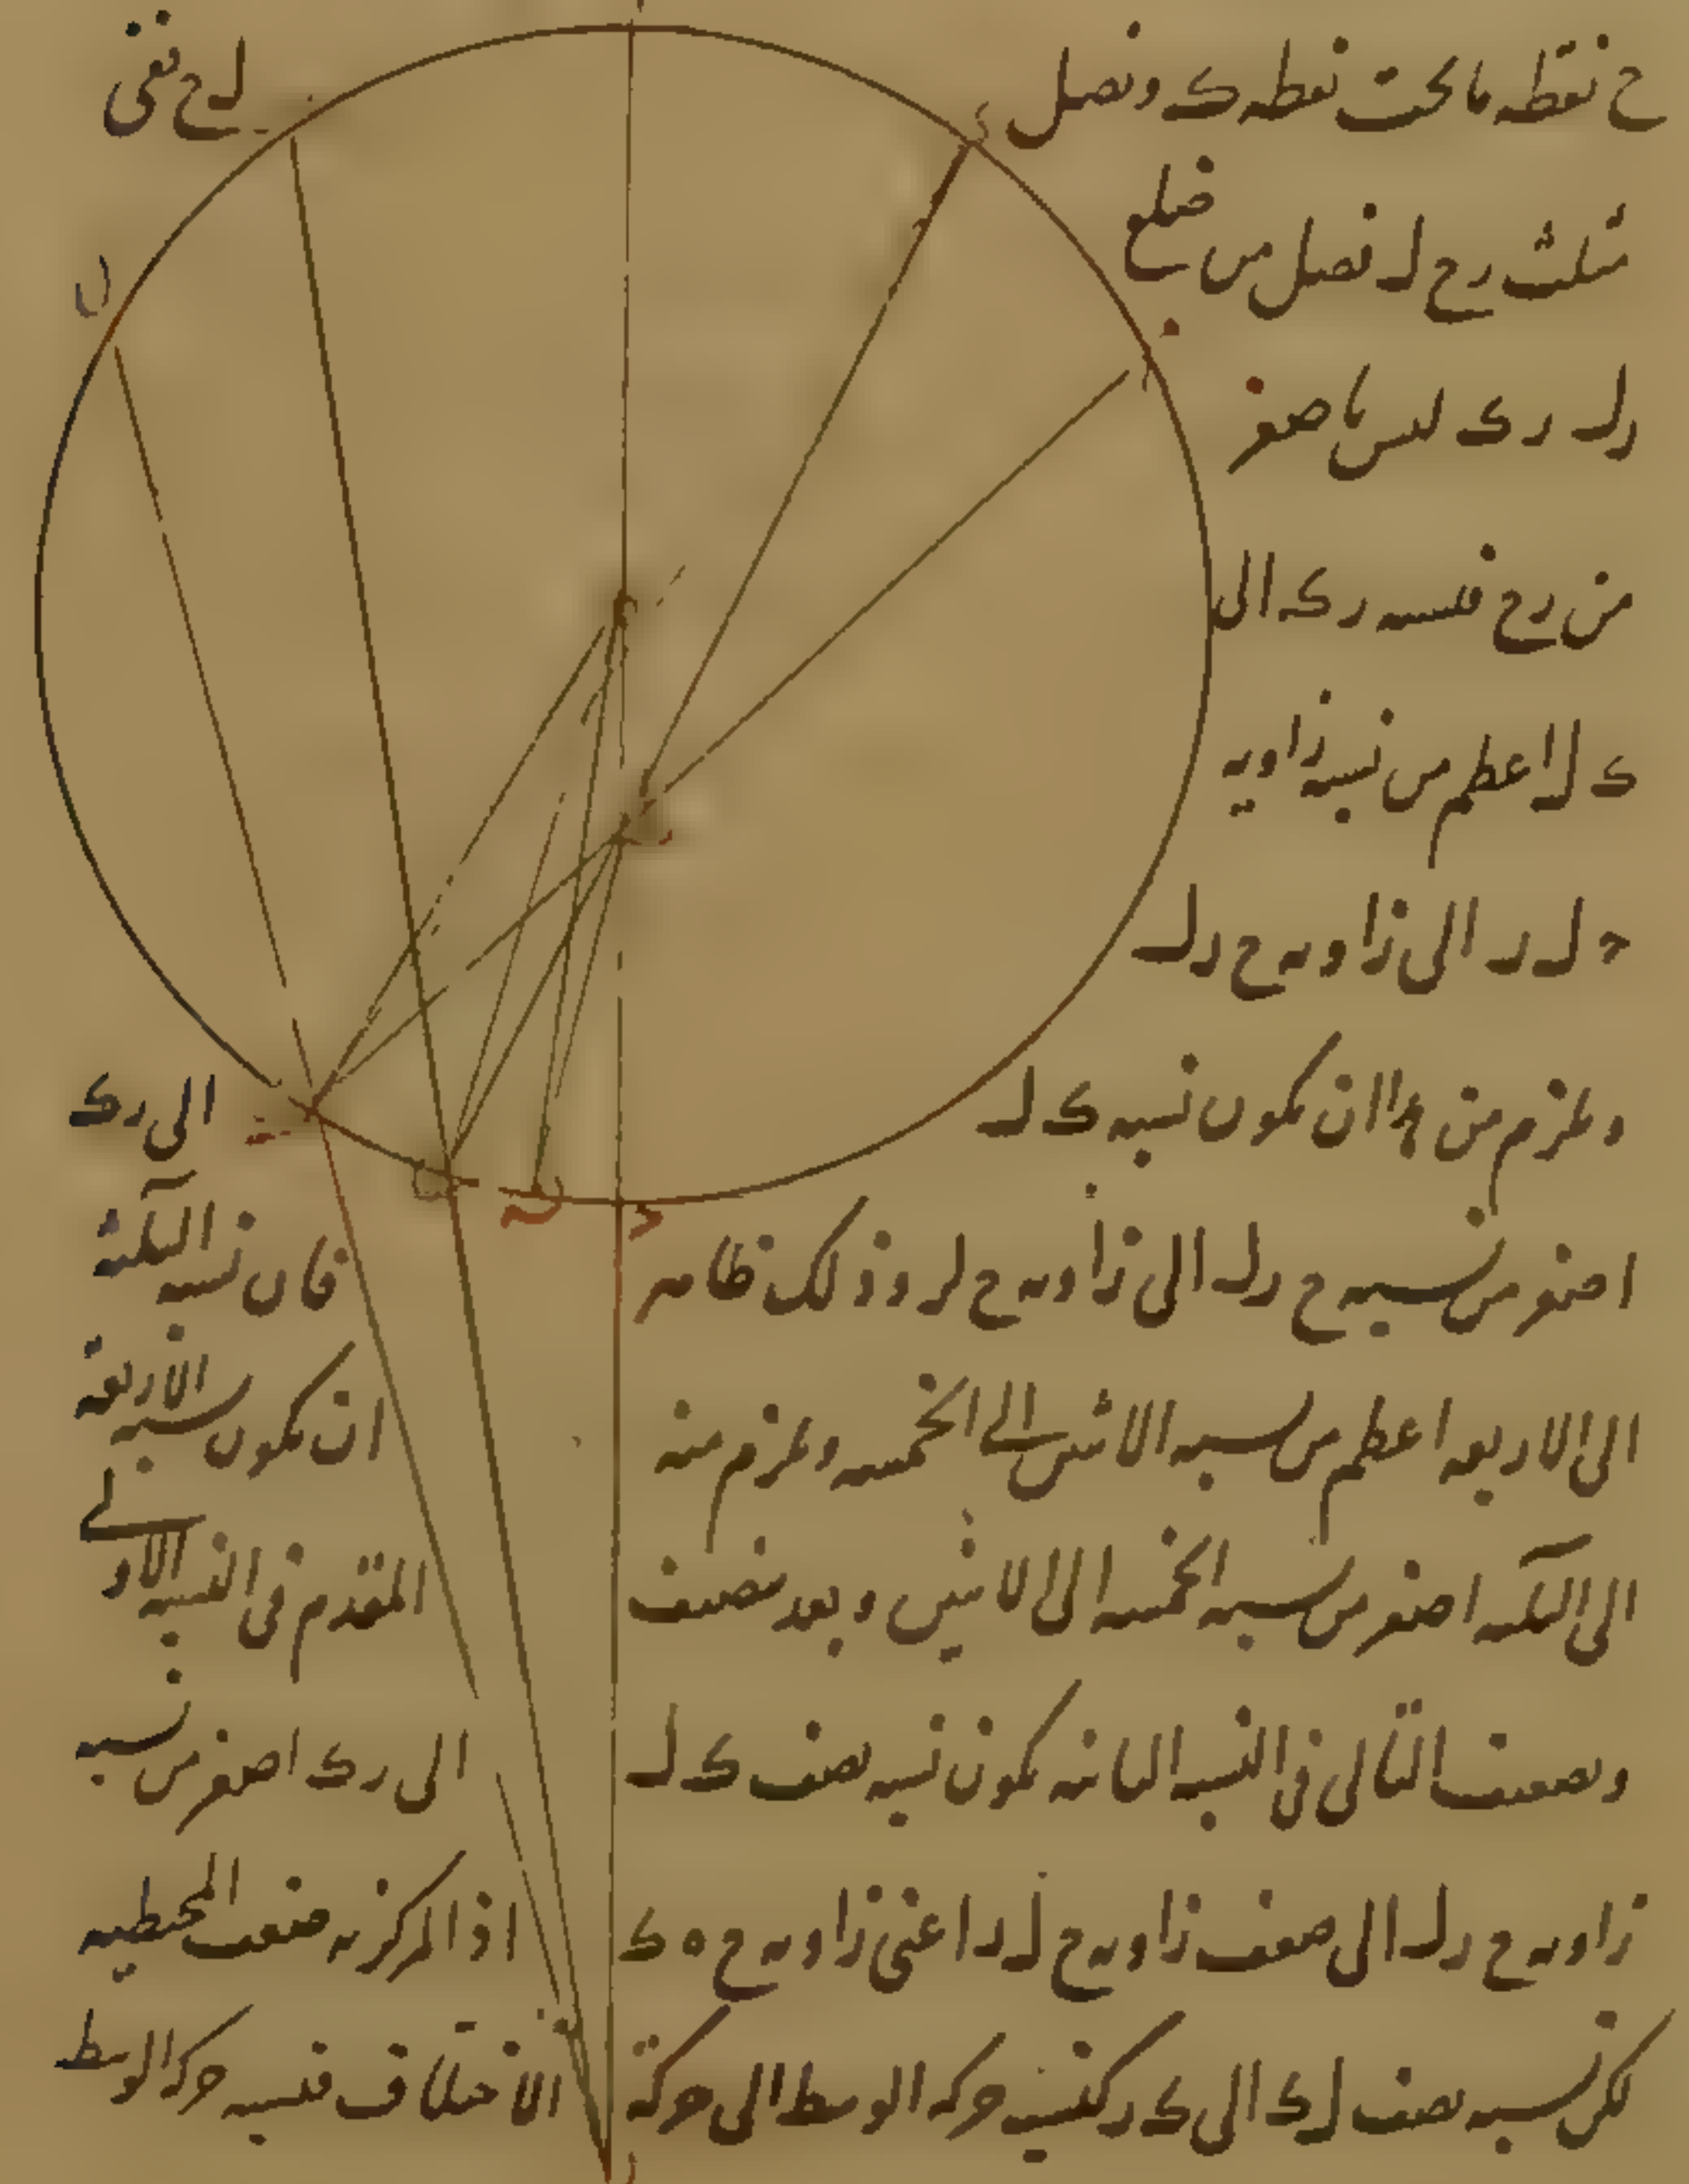 ح نقطه ما تحت نقطه ك ونصل ل ح ففى
مثلث ر ح ل فصل من ضلع
ر ل ر ك ليس باصغر
من ر ح فنسبه ر ك الى
ك ل اعظم من نسبه زاويه
ح ل ر الى زاويه ح ر ل
ويلزم من هذا ان يكون نسبه ك ل الى ر ك
اصغر من نسبه ح ر ل الى زاويه ح ل ر وذلك ظاهر فان نسبه الثلثه
الى الاربعه اعظم من نسبه الاثنين الى الخمسه ويلزم منه ان يكون نسبه الاربعه
الى الثلثه اصغر من نسبه الخمسه الى الاثنين وبعد تنصيف المقدم فى النسبه الاولى
وتضعيف التالى فى النسبه الثانيه يكون نسبه نصف ك ل الى ر ك اصغر من نسبه
زاويه ح ر ل الى ضعف زاويه ح ل ر اعنى زاويه ح ه ك اذ المركزيه ضعف المحيطيه
لكن نسبه نصف ل ك الى ك ر كنسبه حركه الوسط الى حركه الاختلاف فنسبه حركه الوسط